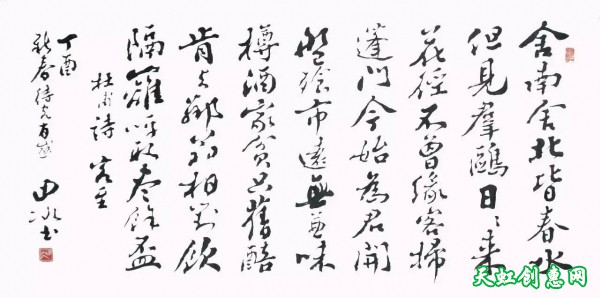 舍南舍北皆春水
但見羣鷗日〻來
花徑不曾緣客掃
蓬門今始為君開
盤飧市遠無兼味
樽酒家貧只舊醅
肯与鄰翁相對飲
隔籬呼取盡餘盃
杜甫詩 客至
丁酉
新春有感 田冰书
天虹创意网